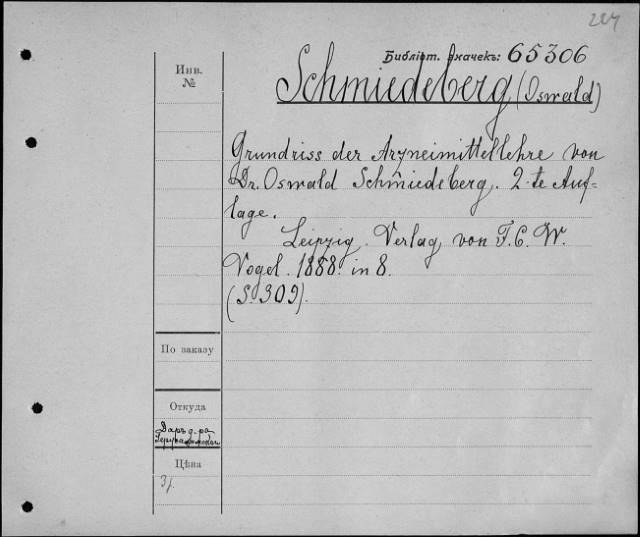 Библіот. значекъ: 65306
Инв. №
Schmiedeberg (Oswald)
Grundriss der Arzneimittellehre von
Dr. Oswald Schmiedeberg. 2-te Auf-
lage.
Leipzig. Verlag von F. C. W.
Vogel. 1888. in 8.
(S. 309).
По заказу
Откуда
Даръ д-ра
Цѣна